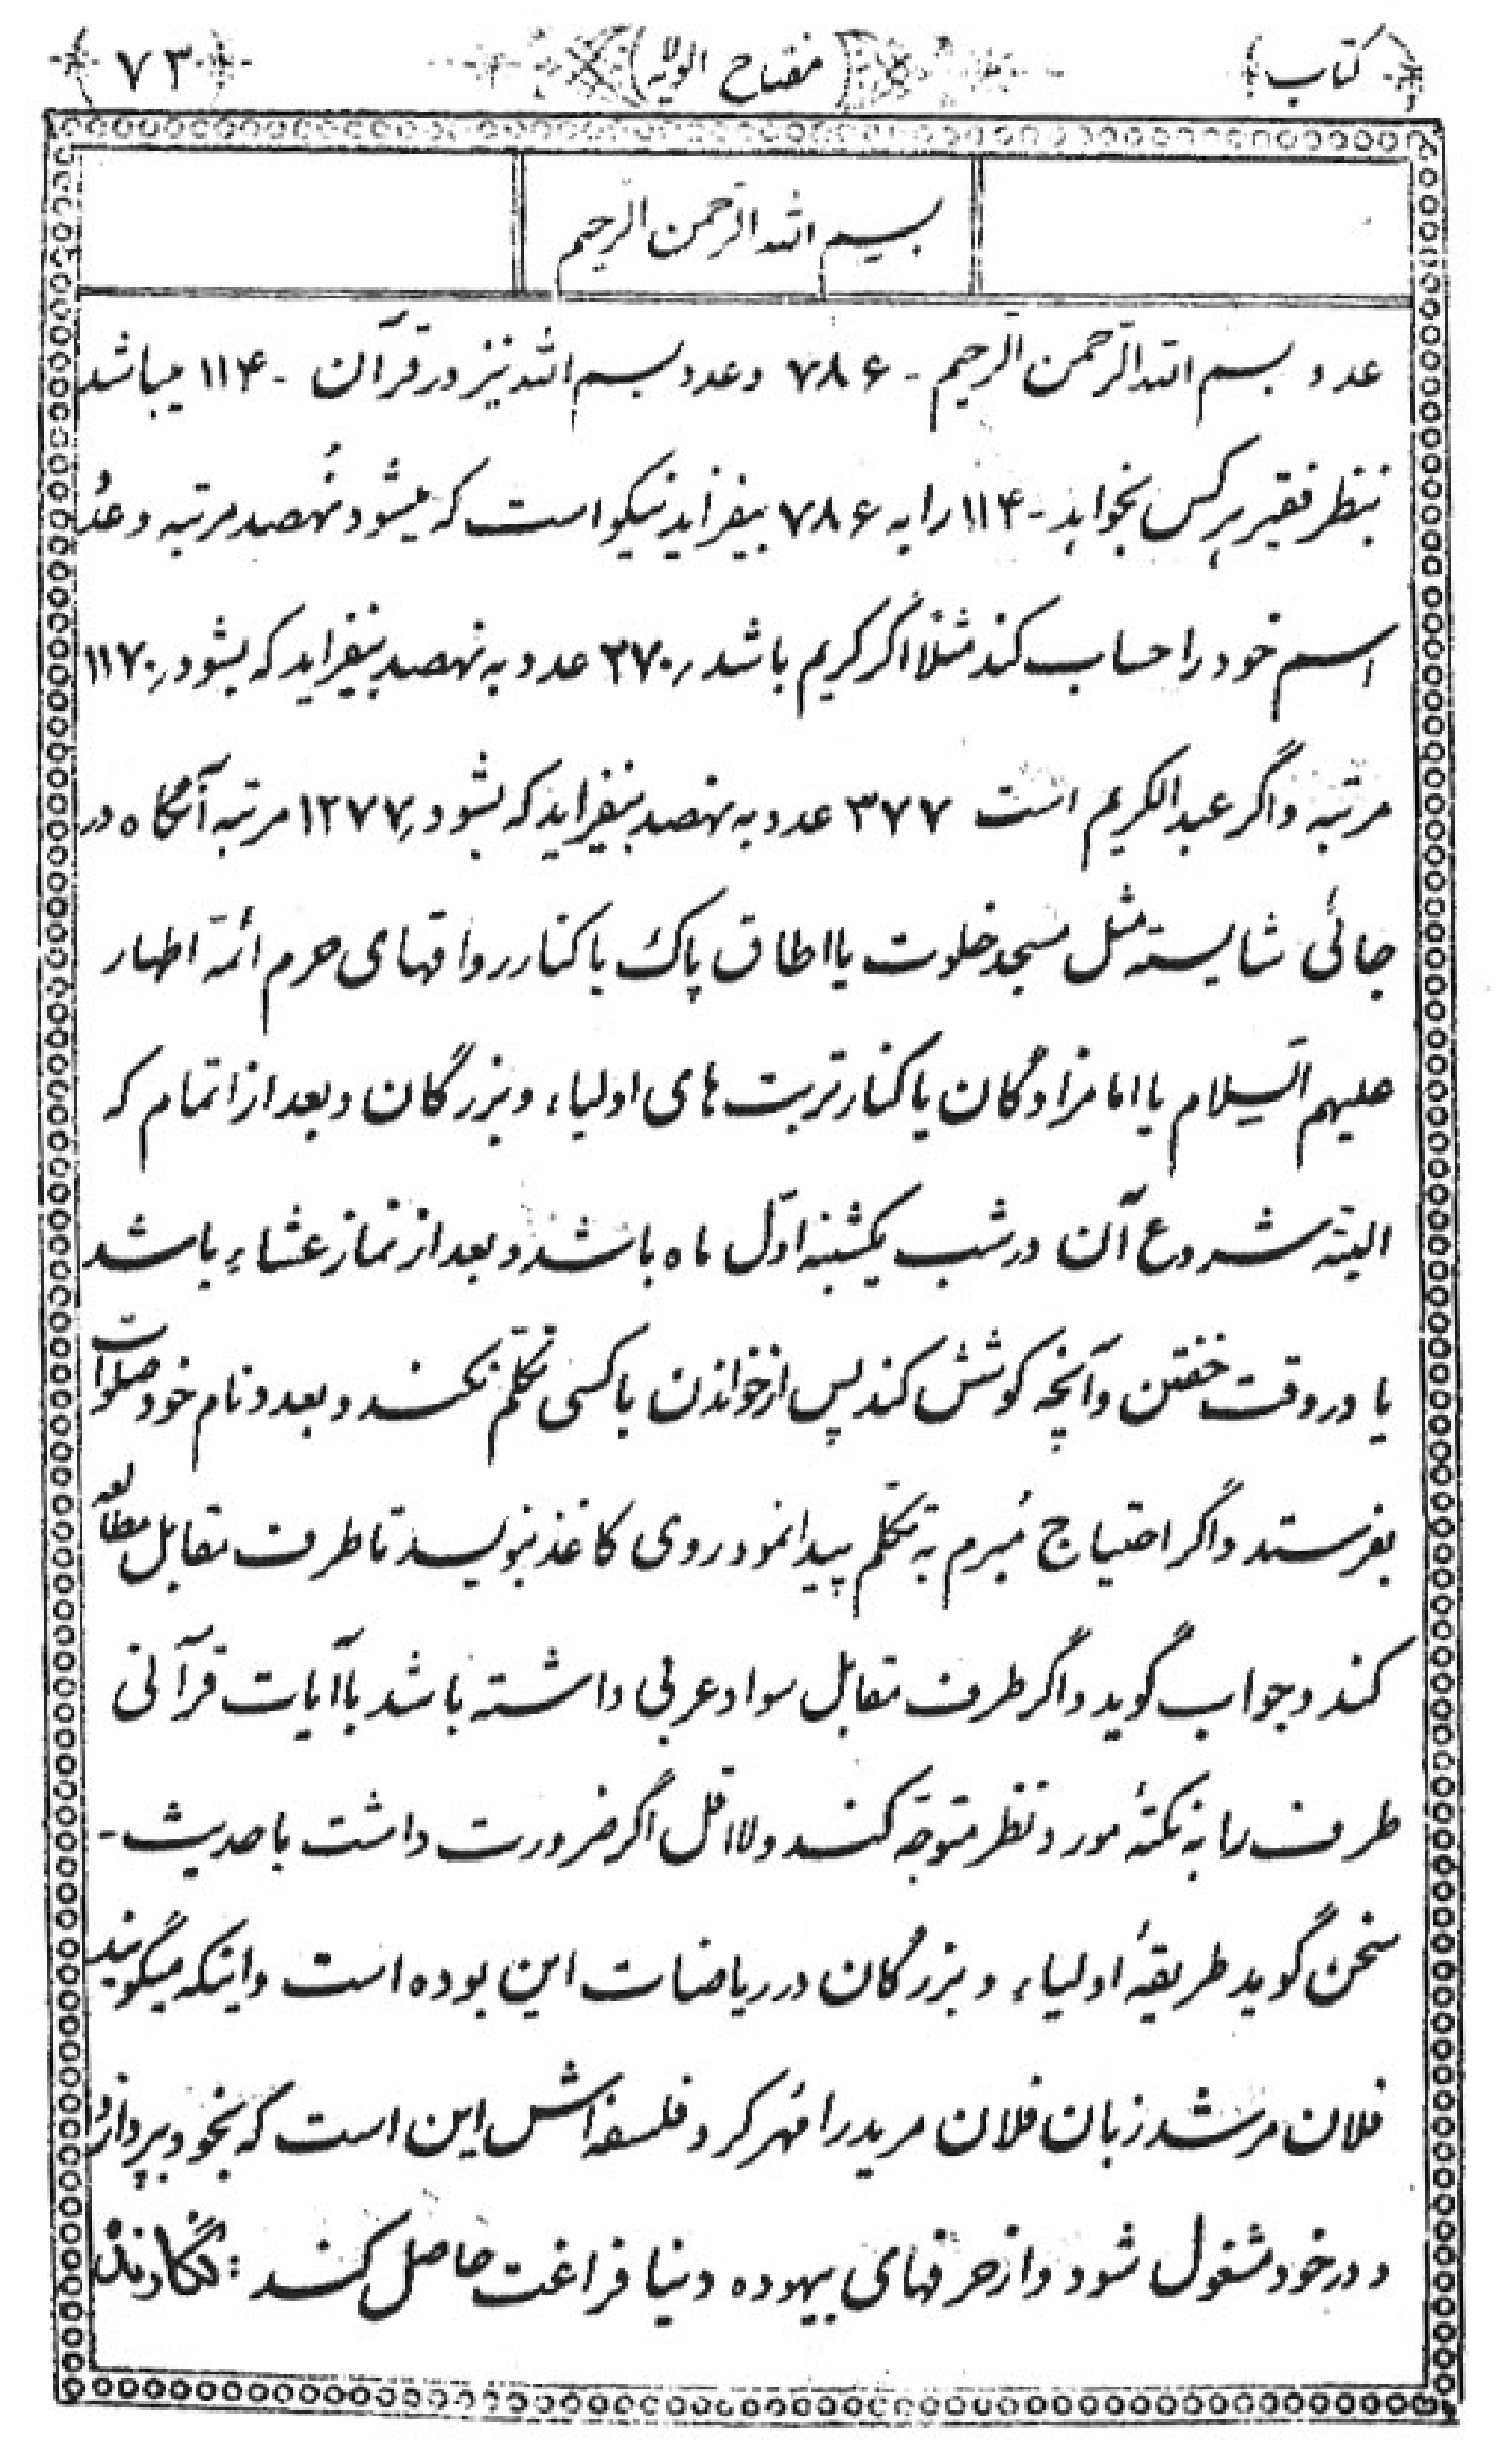 کتاب (مفتاح الولایه) ۷۳
بسم الله الرحمن الرحیم
عدد بسم الله الرحمن الرحیم - ۷۸۶ و عدد بسم الله نیز در قرآن - ۱۱۴ میباشد
بنظر فقیر هرکس بخواهد - ۱۱۴ را به ۷۸۶ بیفزاید نیکو است که میشود نهصد مرتبه و عدد
اسم خود را حساب کند مثلاً اگر کریم باشد ۲۷۰ عدد به نهصد بیفزاید که بشود ۱۱۷۰
مرتبه و اگر عبدالکریم است ۳۷۷ عدد به نهصد بیفزاید که بشود ۱۲۷۷ مرتبه آنگاه در
جائی شایسته مثل مسجد خلوت یا اطاق پاک یا کنار رواقهای حرم ائمه اطهار
علیهم السلام یا امامزادگان یا کنار تربت های اولیاء و بزرگان و بعد از اتمام که
البته شروع آن در شب یکشنبه اول ماه باشد و بعد از نماز عشاء باشد
یا در وقت خفتن و آنچه کوشش کند پس از خواندن با کسی تکلّم نکند و بعدد نام خود صلوات
بفرستد و اگر احتیاج مُبرم به تکلم پیدا نمود روی کاغذ بنویسد تا طرف مقابل مطالعه
کند و جواب گوید و اگر طرف مقابل سواد عربی داشته باشد با آیات قرآنی
طرف را به نکتهٔ مورد نظر متوجّه کند ولااقل اگر ضرورت داشت با حدیث -
سخن گوید طریقهٔ اولیاء و بزرگان در ریاضات این بوده است و اینکه میگویند
فلان مرشد زبان فلان مرید را مُهر کرد فلسفه اش این است که بخود بپردازد
و در خود مشغول شود و از حرفهای بیهوده دنیا فراغت حاصل کند : نگارنده